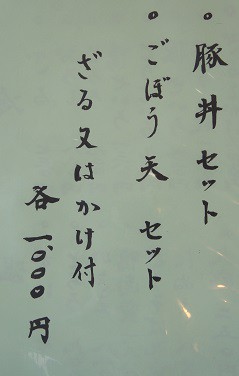 • 豚丼セット
• ごぼう天 セット
ざる又はかけ付
各 一、〇〇〇円